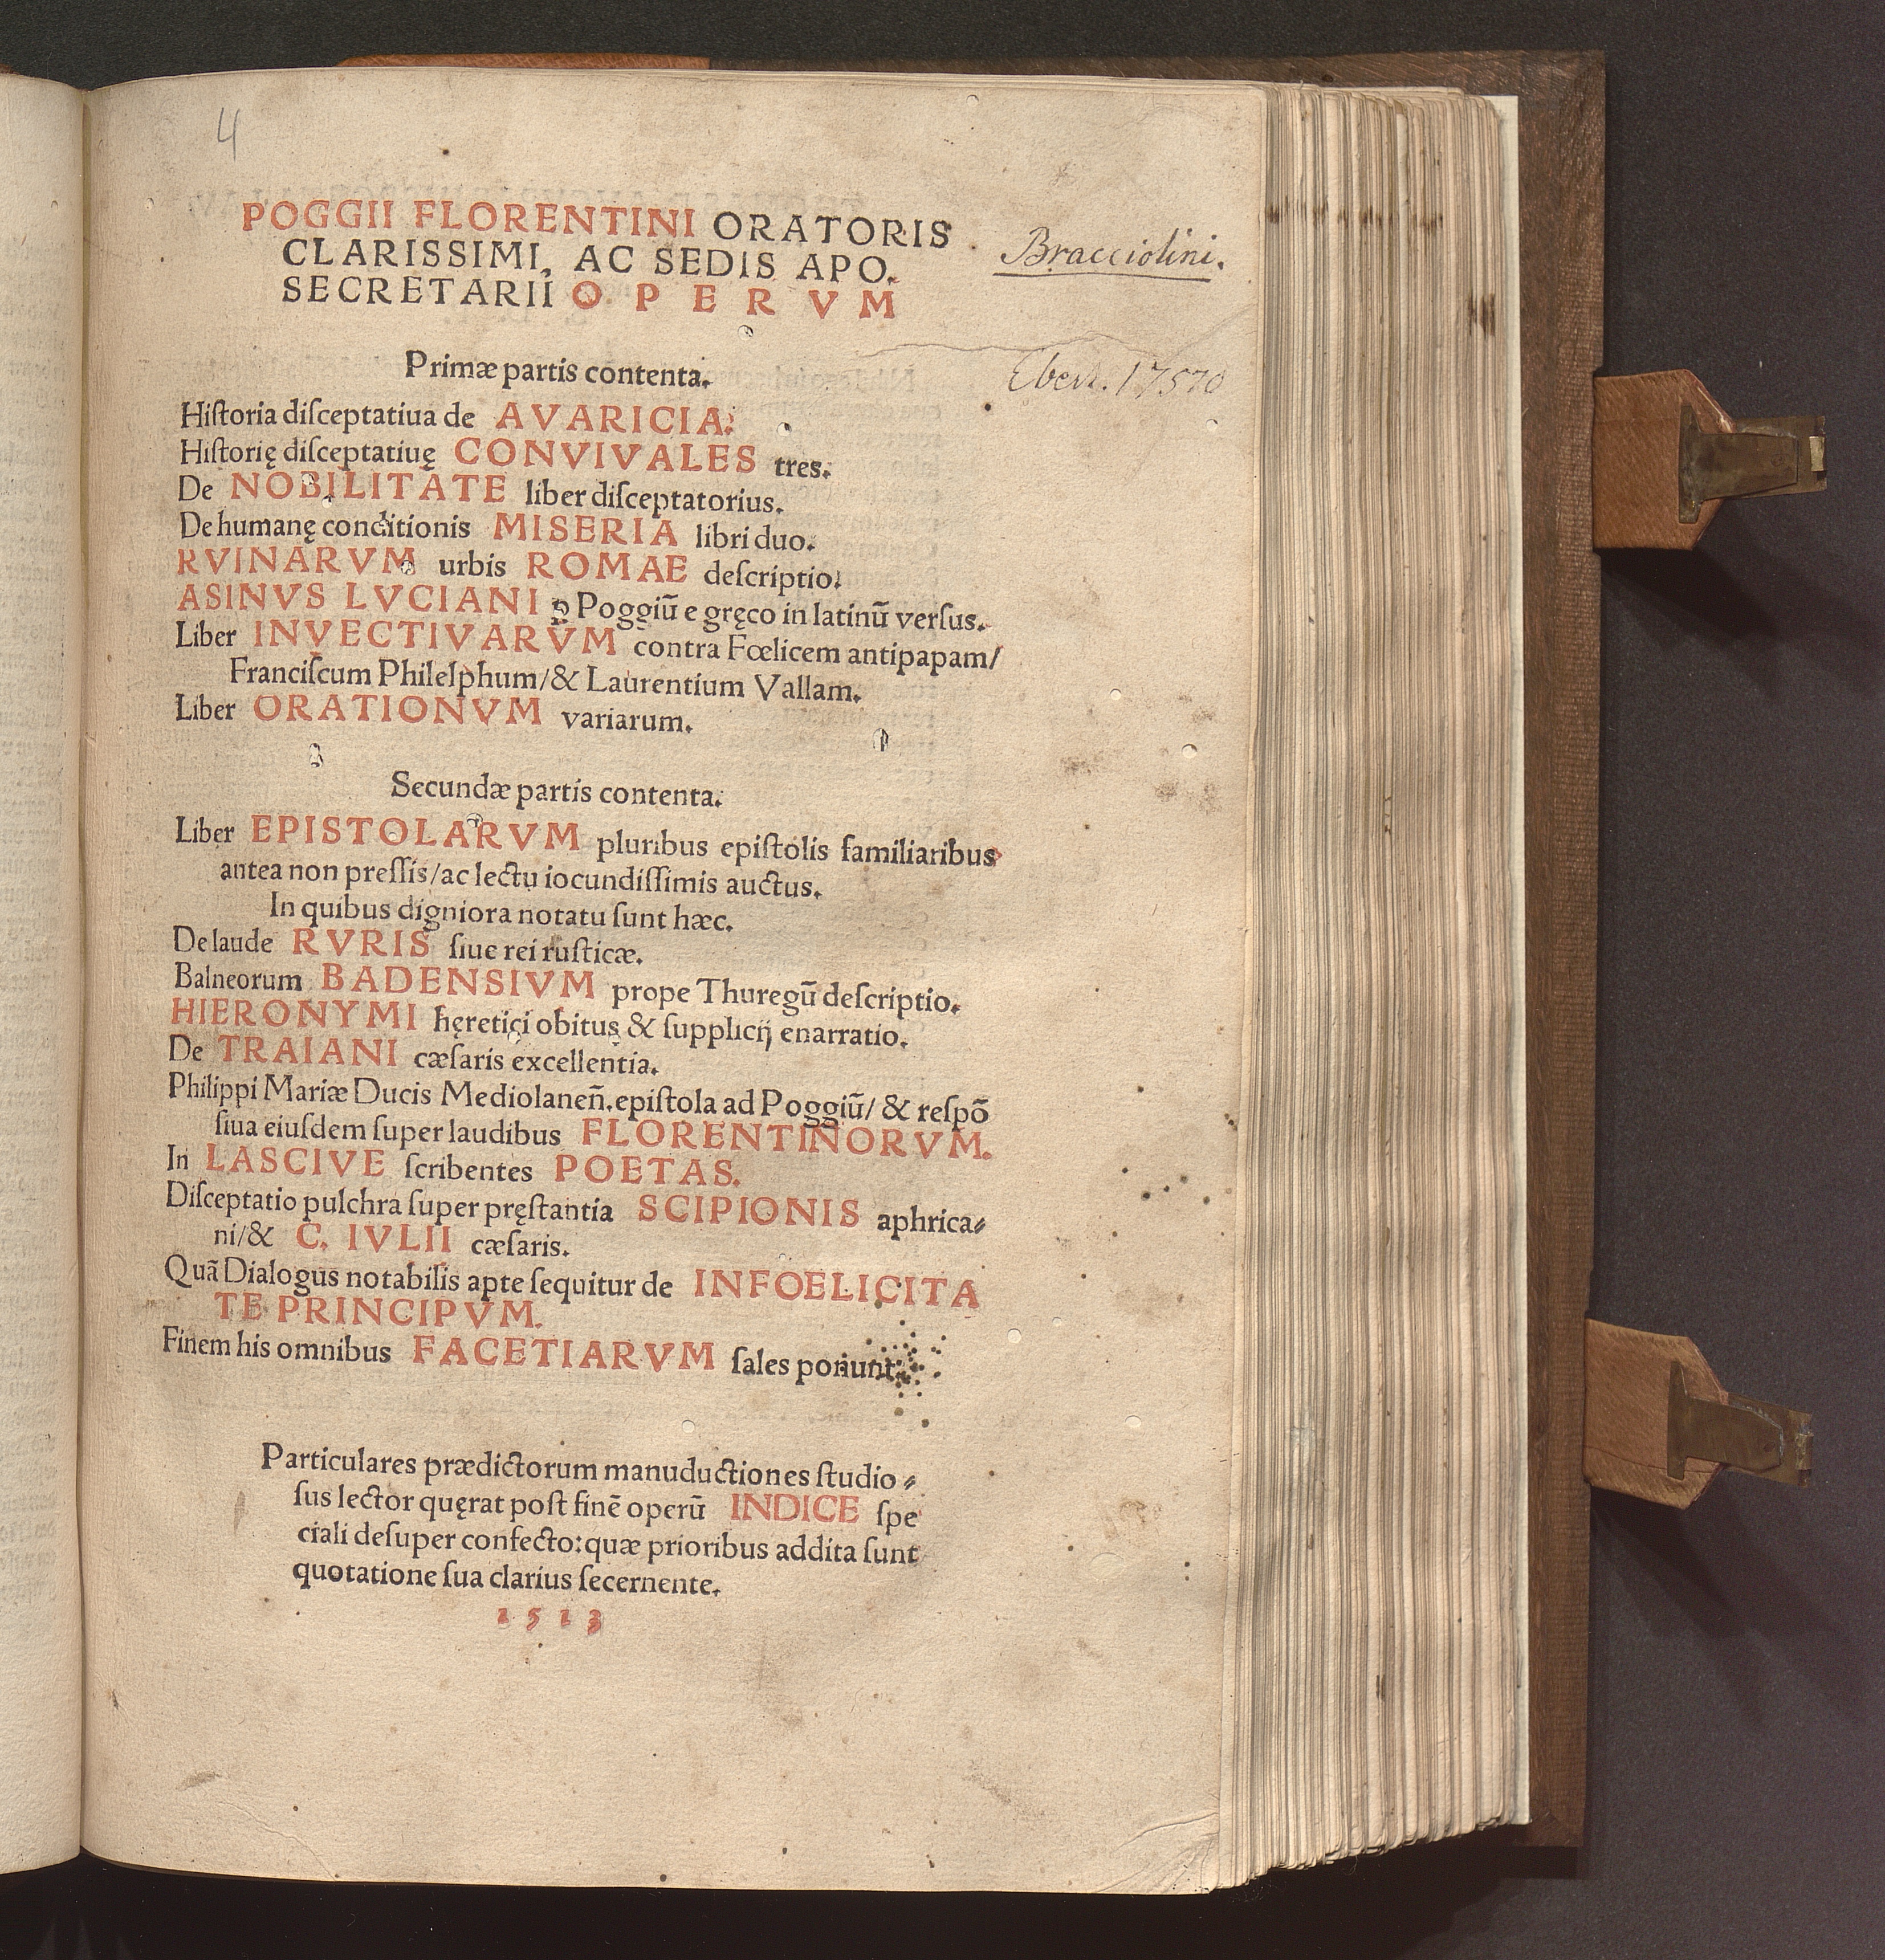 4
POGGII FLORENTINI ORATORIS
CLARISSIMI, AC SEDIS APO.
SECRETARII O P E R V M
Bracciolini.
Ebert. 17570
Primæ partis contenta.
Hiſtoria diſceptatiua de AVARICIA.
Hiſtorię diſceptatiuę CONVIVALES tres.
De NOBILITATE liber diſceptatorius.
De humanę conditionis MISERIA libri duo.
RVINARVM urbis ROMAE deſcriptio.
ASINVS LVCIANI ꝑ Poggiū e gręco in latinū verſus.
Liber INVECTIVARVM contra Fœlicem antipapam/
Franciſcum Philelphum/& Laurentium Vallam.
Liber ORATIONVM variarum.
Secundæ partis contenta.
Liber EPISTOLARVM pluribus epiſtolis familiaribus
antea non preſſis/ac lectu iocundiſſimis auctus.
In quibus digniora notatu ſunt hæc.
De laude RVRIS ſiue rei ruſticæ.
Balneorum BADENSIVM prope Thuregū deſcriptio.
HIERONYMI hęretici obitus & ſupplicij enarratio.
De TRAIANI cæſaris excellentia.
Philippi Mariæ Ducis Mediolaneñ.epiſtola ad Poggiū/ & reſpō
ſiua eiuſdem ſuper laudibus FLORENTINORVM.
In LASCIVE ſcribentes POETAS.
Diſceptatio pulchra ſuper pręſtantia SCIPIONIS aphrica⸗
ni/& C. IVLII cæſaris.
Quā Dialogus notabilis apte ſequitur de INFOELICITA
TE PRINCIPVM.
Finem his omnibus FACETIARVM ſales ponunt.
Particulares prædictorum manuductiones ſtudio⸗
ſus lector quęrat poſt finē operū INDICE ſpe
ciali deſuper confecto:quæ prioribus addita ſunt
quotatione ſua clarius ſecernente.
1513